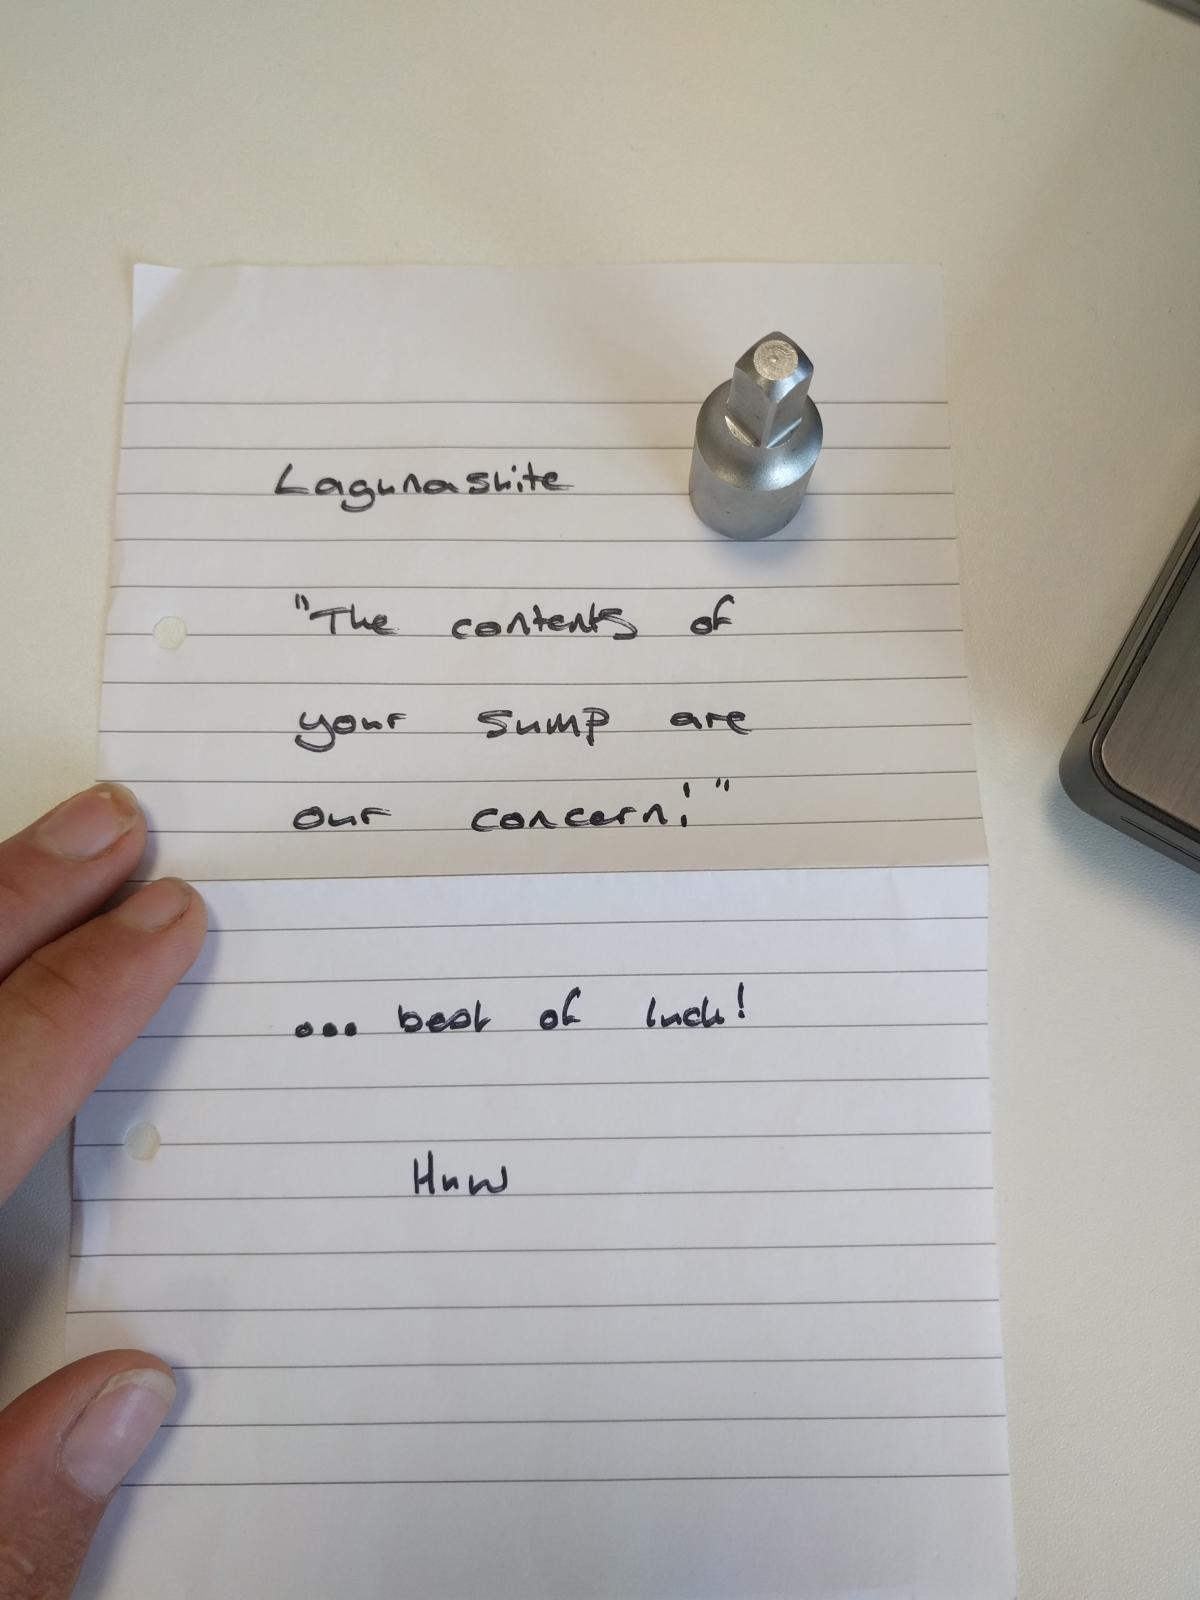 Lagunashite
"The contents of
your sump are
our concern!"
... best of luck!
Huw